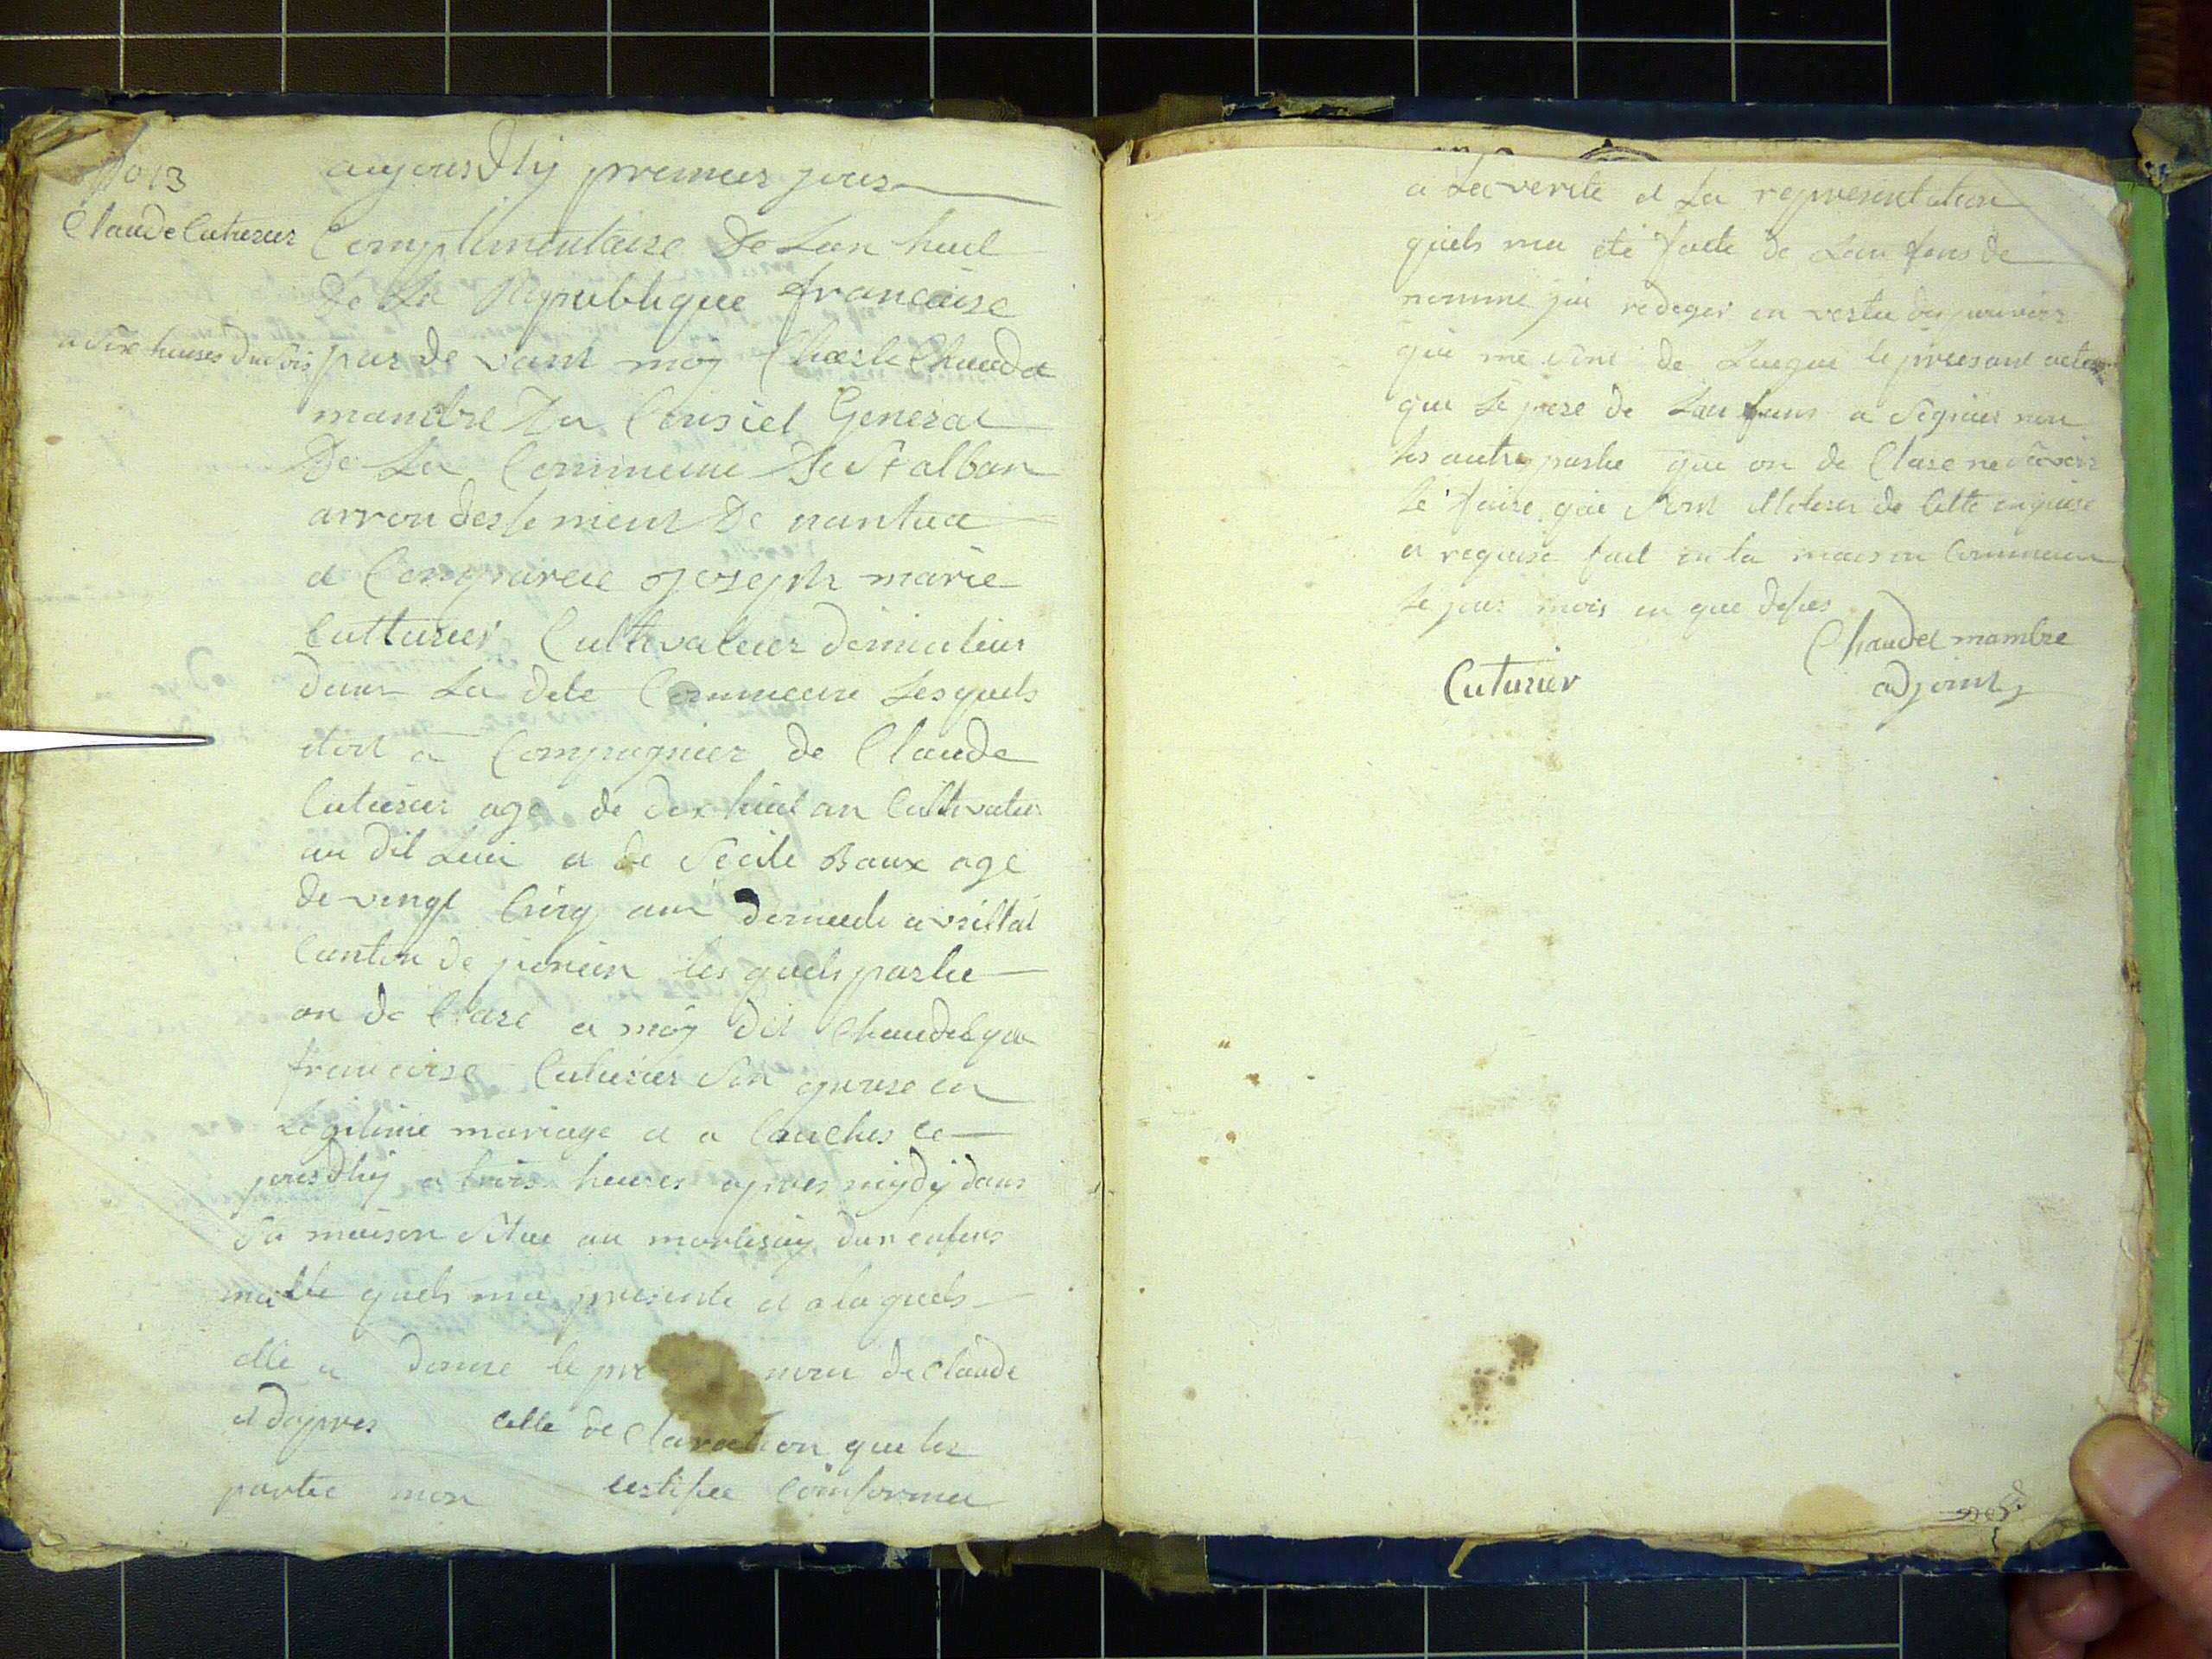 No 13
Claude Cuturier
a six heures du soir
aujourdhÿ premier jour
Complimentaire De Lan huit
De La Republique francaise
par de vant moÿ Charle Chaudet
manbre Du Consiel General
De La Commune De St alban
arrondessement De nantua
a Comparue joseph marie
Cutturier Cultivateur demicilier
dans La dite Commune Lesquels
etoit a Compagnier de Claude
Cuturier age de dix huit an Cultivateur
au dit Lieu et de Secile Baux age
de vingt Cinq ans
Canton de les quels partie
on de Clare a moÿ dit Chaudet que
francoise Cuturier Son epouse en
Legitime mariage et a Coucher ce
jourdhÿ a trois heures apres mÿdÿ dans
Sa maison Situe au dun enfans
quels ma presente et a la quels
elle a donne le pre nom de Claude
et dapres cette de Claration que les
partie mon certifiee Comforme
a La verite et La representation
quels ma été faite de Lan fans de
nomme jai rediger en vertu des pouvoirs
qui me sont de Legue le presant acte
que Le pere de Lan fans a Signier non
les autre partie que on de Clare ne Savoir
Le faire de Cette enquise
et requise fait en la maison Commune
Le jour mois en que desus
Chaudet mambre
Cuturier
adjoint